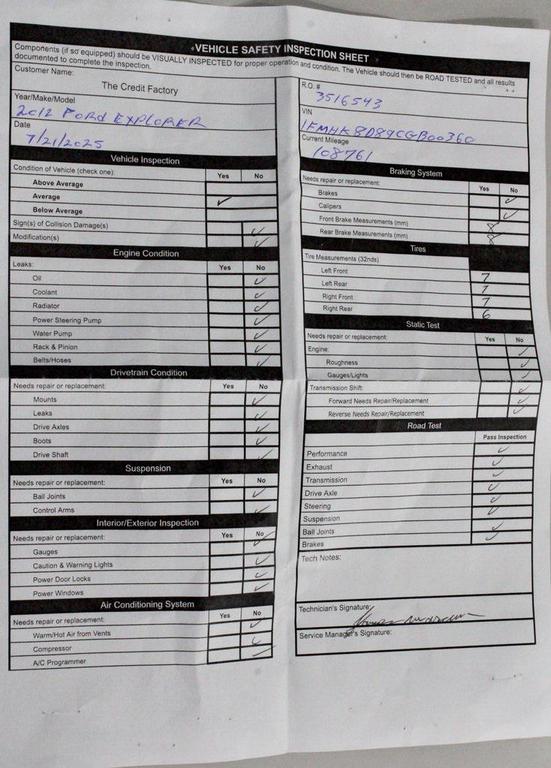 VEHICLE SAFETY INSPECTION SHEET
Components (if so equipped) should be VISUALLY INSPECTED for proper operation and condition. The Vehicle should then be ROAD TESTED and all results
documented to complete the inspection.
Customer Name:
The Credit Factory
Year/Make/Model
2012 FORD EXPLORER
Date
7/21/2025
Vehicle Inspection
Condition of Vehicle (check one): Yes No
Above Average
Average ✓
Below Average
Sign(s) of Collision Damage(s) ✓
Modification(s) ✓
Engine Condition
Leaks: Yes No
Oil ✓
Coolant ✓
Radiator ✓
Power Steering Pump ✓
Water Pump ✓
Rack & Pinion ✓
Belts/Hoses ✓
Drivetrain Condition
Needs repair or replacement: Yes No
Mounts ✓
Leaks ✓
Drive Axles ✓
Boots ✓
Drive Shaft ✓
Suspension
Needs repair or replacement: Yes No
Ball Joints ✓
Control Arms ✓
Interior/Exterior Inspection
Needs repair or replacement: Yes No
Gauges ✓
Caution & Warning Lights ✓
Power Door Locks ✓
Power Windows ✓
Air Conditioning System
Needs repair or replacement: Yes No
Warm/Hot Air from Vents ✓
Compressor ✓
A/C Programmer ✓
R.O. #
3516543
VIN
1FMHK8D89CGB00360
Current Mileage
108761
Braking System
Needs repair or replacement: Yes No
Brakes ✓
Calipers ✓
Front Brake Measurements (mm) 8
Rear Brake Measurements (mm) 8
Tires
Tire Measurements (32nds)
Left Front 7
Left Rear 7
Right Front 7
Right Rear 6
Static Test
Needs repair or replacement: Yes No
Engine: ✓
Roughness ✓
Gauges/Lights ✓
Transmission Shift:
Forward Needs Repair/Replacement ✓
Reverse Needs Repair/Replacement ✓
Road Test
Pass Inspection
Performance ✓
Exhaust ✓
Transmission ✓
Drive Axle ✓
Steering ✓
Suspension ✓
Ball Joints ✓
Brakes ✓
Tech Notes:
Technician's Signature:
Service Manager's Signature: